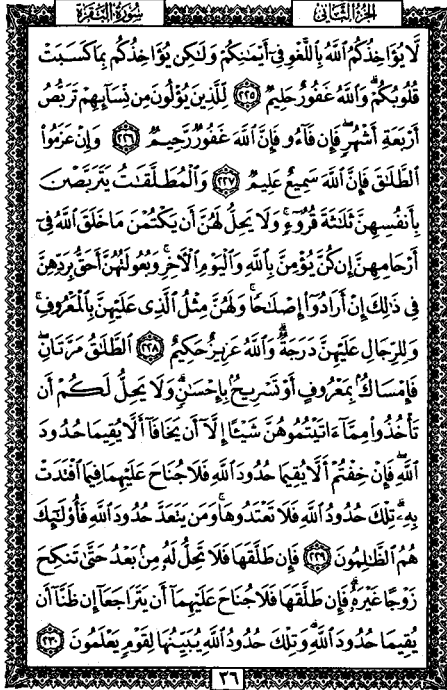 الجزء الثاني
سورة البقرة
لَّا يُؤَاخِذُكُمُ ٱللَّهُ بِٱللَّغْوِ فِىٓ أَيْمَٰنِكُمْ وَلَٰكِن يُؤَاخِذُكُم بِمَا كَسَبَتْ
قُلُوبُكُمْ ۗ وَٱللَّهُ غَفُورٌ حَلِيمٌ ٢٢٥ لِّلَّذِينَ يُؤْلُونَ مِن نِّسَآئِهِمْ تَرَبُّصُ
أَرْبَعَةِ أَشْهُرٍ ۖ فَإِن فَآءُو فَإِنَّ ٱللَّهَ غَفُورٌ رَّحِيمٌ ٢٢٦ وَإِنْ عَزَمُوا۟
ٱلطَّلَٰقَ فَإِنَّ ٱللَّهَ سَمِيعٌ عَلِيمٌ ٢٢٧ وَٱلْمُطَلَّقَٰتُ يَتَرَبَّصْنَ
بِأَنفُسِهِنَّ ثَلَٰثَةَ قُرُوٓءٍ ۚ وَلَا يَحِلُّ لَهُنَّ أَن يَكْتُمْنَ مَا خَلَقَ ٱللَّهُ فِىٓ
أَرْحَامِهِنَّ إِن كُنَّ يُؤْمِنَّ بِٱللَّهِ وَٱلْيَوْمِ ٱلْءَاخِرِ ۚ وَبُعُولَتُهُنَّ أَحَقُّ بِرَدِّهِنَّ
فِى ذَٰلِكَ إِنْ أَرَادُوٓا۟ إِصْلَٰحًا ۚ وَلَهُنَّ مِثْلُ ٱلَّذِى عَلَيْهِنَّ بِٱلْمَعْرُوفِ ۚ
وَلِلرِّجَالِ عَلَيْهِنَّ دَرَجَةٌ ۗ وَٱللَّهُ عَزِيزٌ حَكِيمٌ ٢٢٨ ٱلطَّلَٰقُ مَرَّتَانِ ۖ
فَإِمْسَاكٌۢ بِمَعْرُوفٍ أَوْ تَسْرِيحٌۢ بِإِحْسَٰنٍ ۗ وَلَا يَحِلُّ لَكُمْ أَن
تَأْخُذُوا۟ مِمَّآ ءَاتَيْتُمُوهُنَّ شَيْـًٔا إِلَّآ أَن يَخَافَآ أَلَّا يُقِيمَا حُدُودَ
ٱللَّهِ ۖ فَإِنْ خِفْتُمْ أَلَّا يُقِيمَا حُدُودَ ٱللَّهِ فَلَا جُنَاحَ عَلَيْهِمَا فِيمَا ٱفْتَدَتْ
بِهِۦ ۗ تِلْكَ حُدُودُ ٱللَّهِ فَلَا تَعْتَدُوهَا ۚ وَمَن يَتَعَدَّ حُدُودَ ٱللَّهِ فَأُو۟لَٰٓئِكَ
هُمُ ٱلظَّٰلِمُونَ ٢٢٩ فَإِن طَلَّقَهَا فَلَا تَحِلُّ لَهُۥ مِنۢ بَعْدُ حَتَّىٰ تَنكِحَ
زَوْجًا غَيْرَهُۥ ۗ فَإِن طَلَّقَهَا فَلَا جُنَاحَ عَلَيْهِمَآ أَن يَتَرَاجَعَآ إِن ظَنَّآ أَن
يُقِيمَا حُدُودَ ٱللَّهِ ۗ وَتِلْكَ حُدُودُ ٱللَّهِ يُبَيِّنُهَا لِقَوْمٍ يَعْلَمُونَ ٢٣٠
٣٦